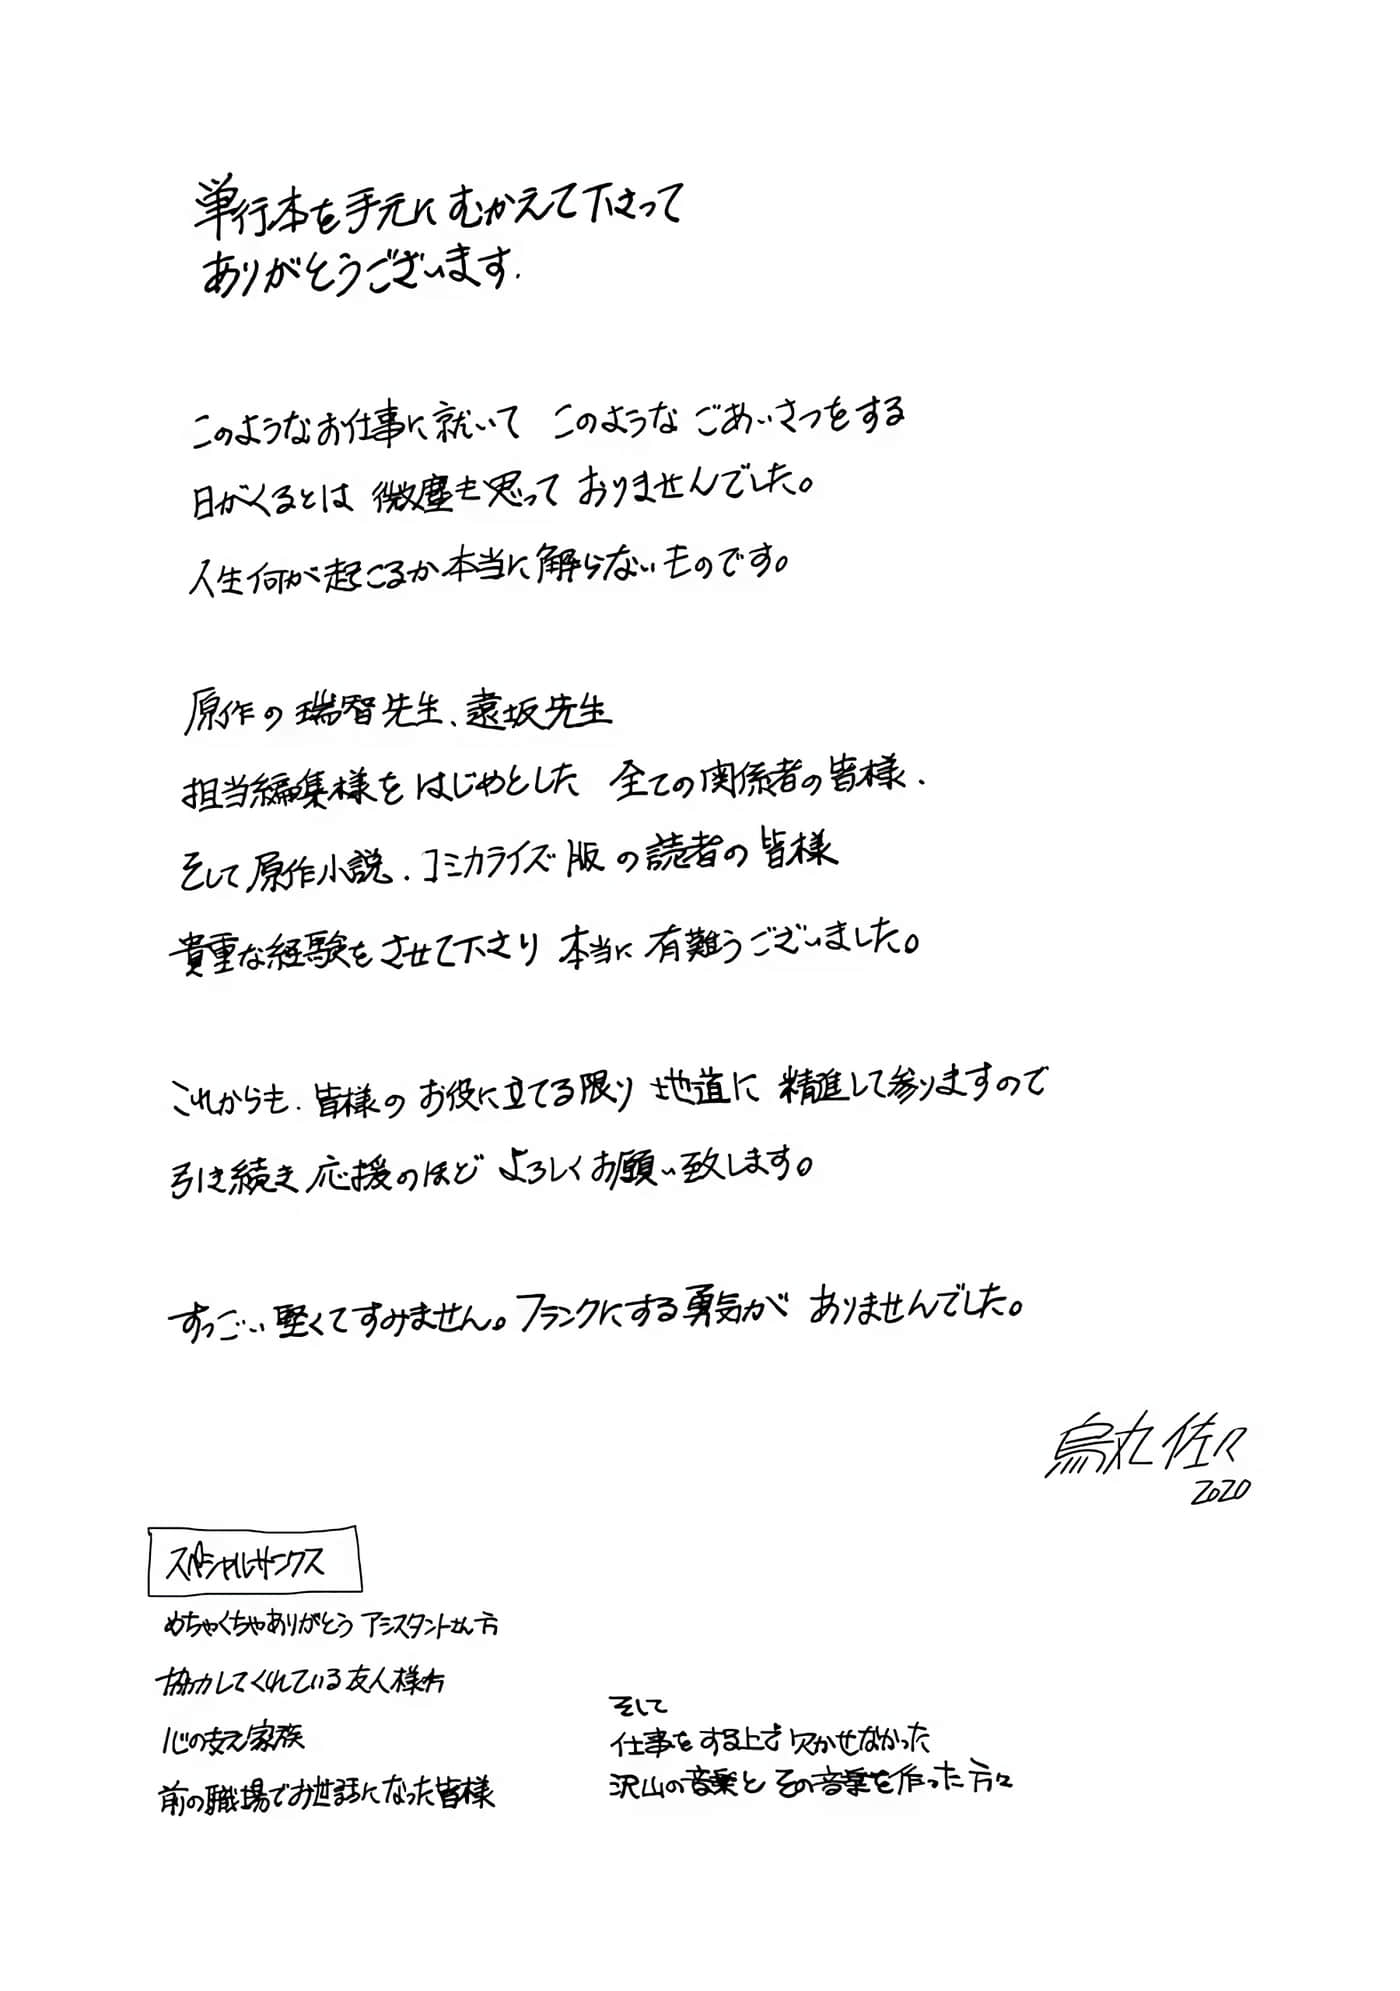 単行本を手元にむかえて下さって
ありがとうございます.
このようなお仕事に就いて このような ごあいさつをする
日がくるとは 微塵も思って おりませんでした。
人生何が起こるか本当に解らないものです。
原作の瑞智先生、遠坂先生
担当編集様をはじめとした 全ての関係者の皆様.
そして原作小説.コミカライズ版の読者の皆様
貴重な経験をさせて下さり 本当に有難うございました。
これからも.皆様のお役に立てる限り 地道に 精進して参りますので
引き続き応援のほど よろしくお願い致します。
すっごい堅くてすみません。フランクにする勇気が ありませんでした。
烏丸佐々
2020
スペシャルサンクス
めちゃくちゃありがとう アシスタントさん方
協力してくれている友人様方
心の支え家族
前の職場でお世話になった皆様
そして
仕事をする上で欠かせなかった
沢山の音楽と その音楽を作った方々